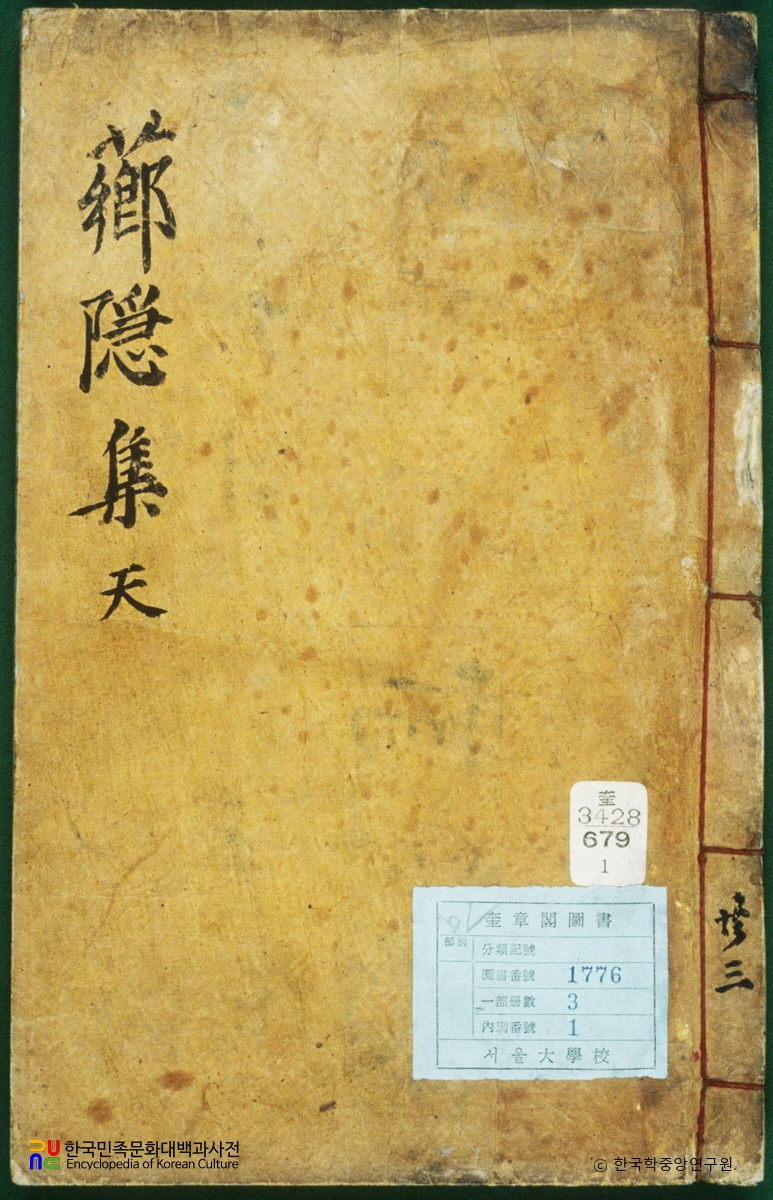 薌隠集 天
奎
3428
679
1
奎章閣圖書
部別
分類記號
圖書番號 1776
一部册數 3
內別番號 1
서울大學校
三
한국민족문화대백과사전
Encyclopedia of Korean Culture
© 한국학중앙연구원.